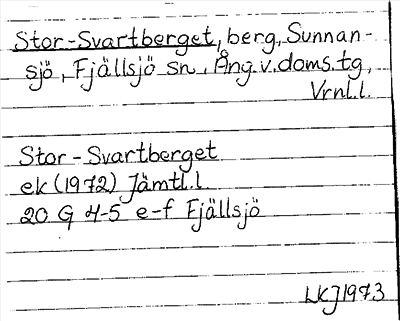 Stor-Svartberget, berg, Sunnan-
sjö, Fjällsjö sn, Ång.v.doms.tg,
Vrnl.l.
Stor-Svartberget
ek (1972) Jämtl.l
20 G 4-5 e-f Fjällsjö
LKJ1973